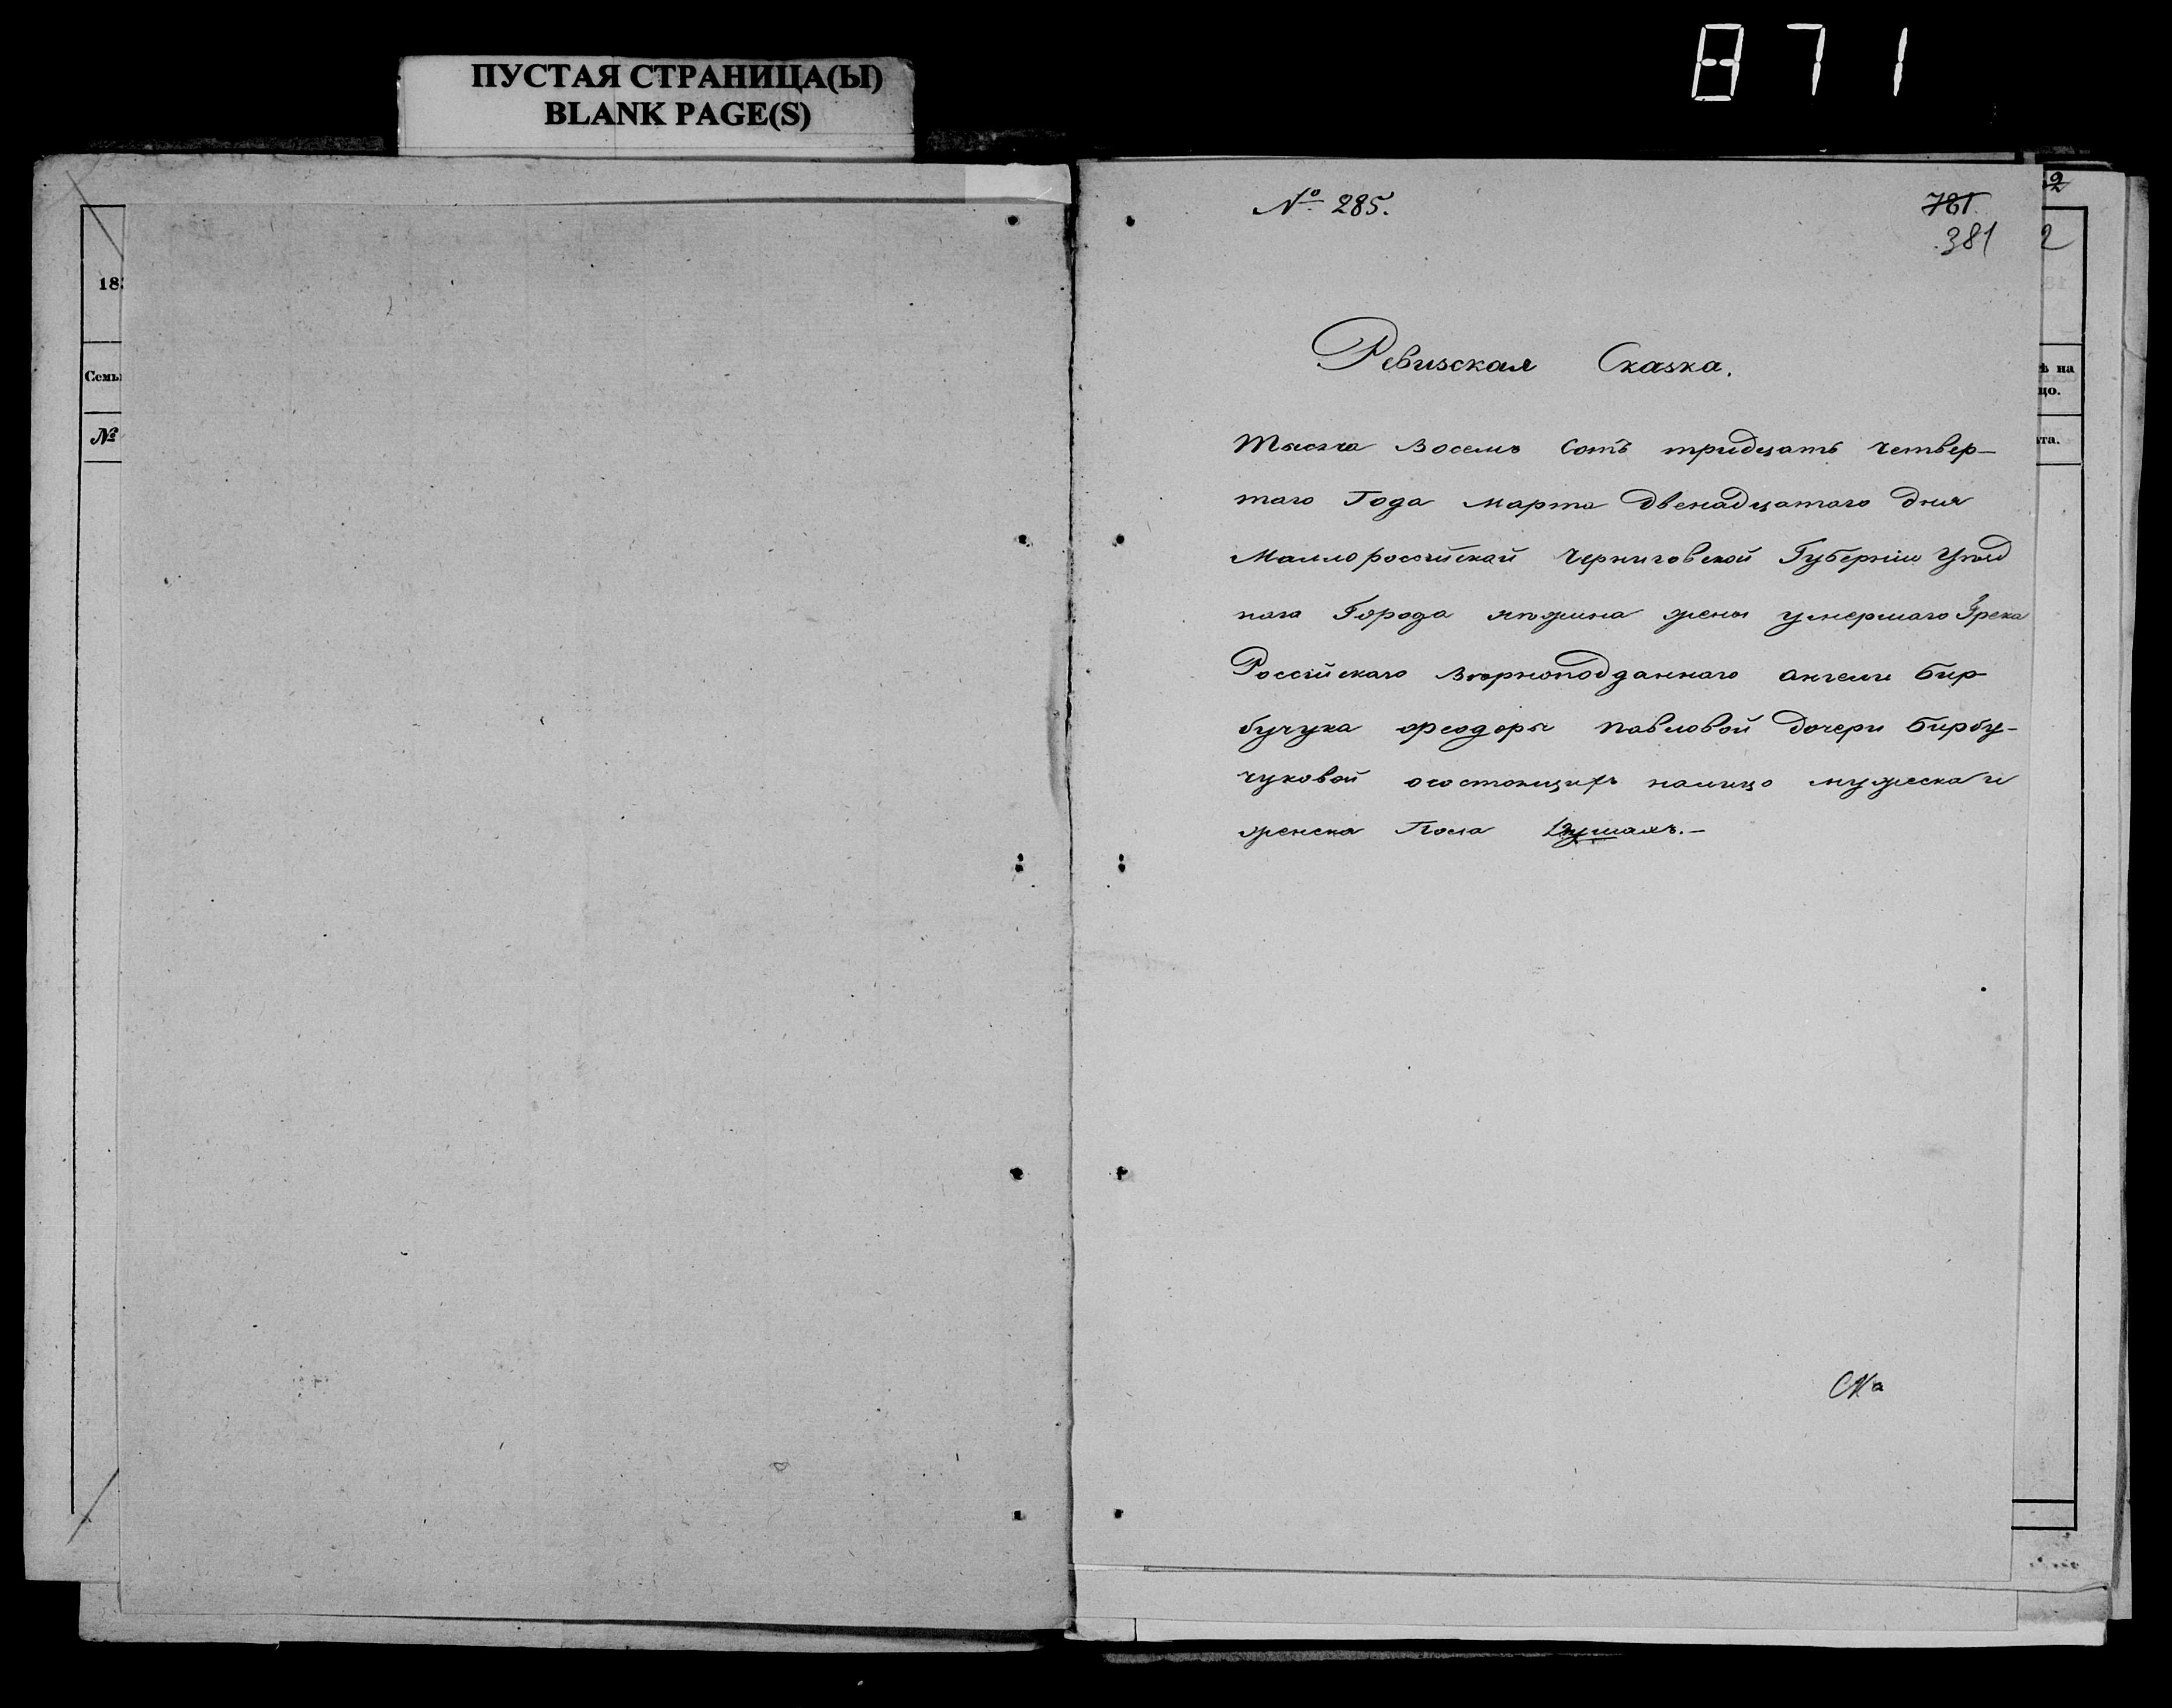 ПУСТАЯ СТРАНИЦА(Ы)
BLANK PAGE(S)
871
18
Семь
№
№ 285.
781.
381
2
2
ѣ на
цо.
ѣта.
Ревизская Сказка.
Тысяча Восемь Сотъ тридцать четвер-
таго Года марта двенадцатаго дня
Малороссійской Черниговской Губерніи Уѣзд
наго Города нѣжина жены умершаго Грека
Россійскаго Вѣрноподданнаго ангели Бир
бучука ѳеодоры Павловой дочери Бирбу-
чуковой осостоящихъ налицо мужеска и
женска Пола Душахъ.-
Ска